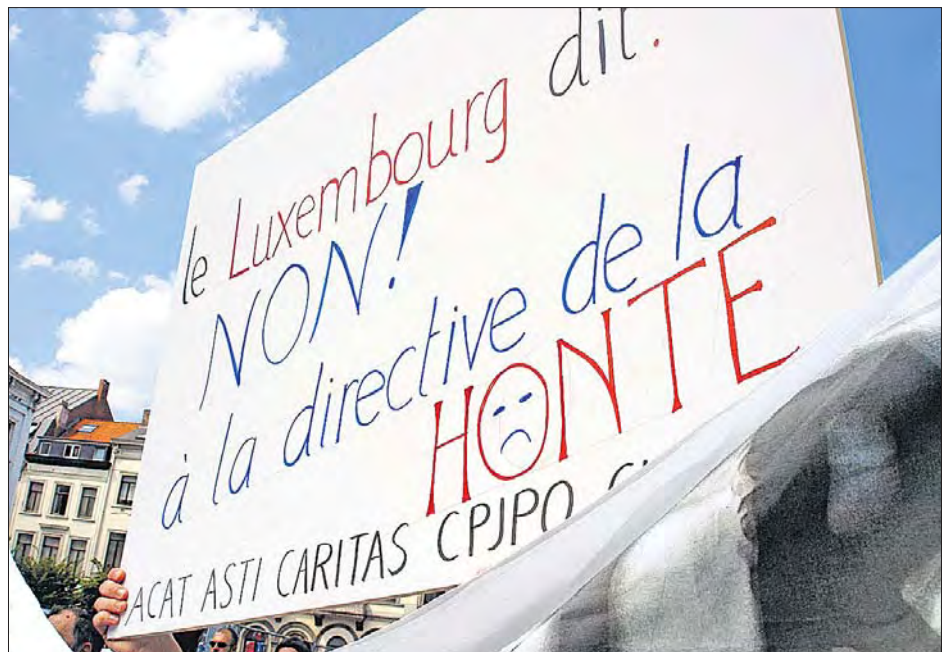 le Luxembourg dit:
NON!
à la directive de la
HONTE
ACAT ASTI CARITAS CPJPO